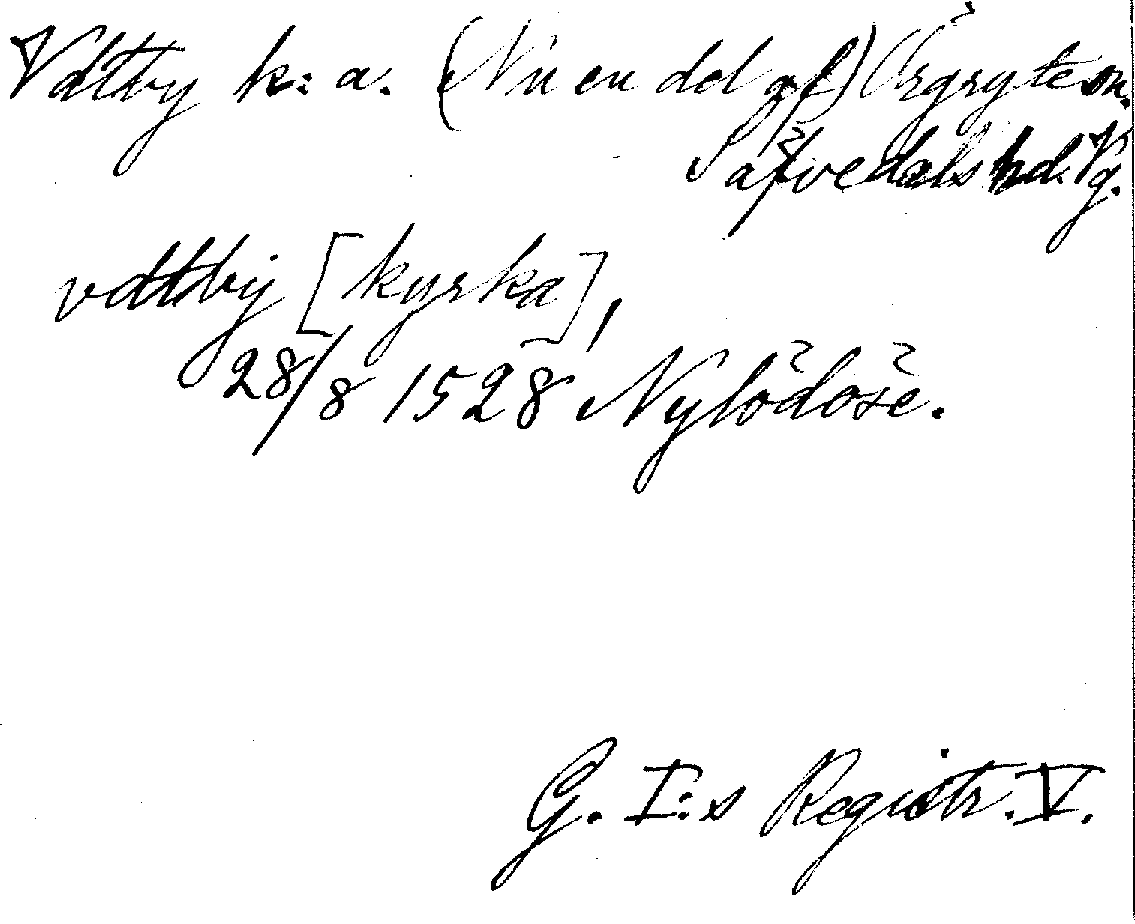 Vdtby k: a. (Nu en del af) Örgryte sn.
Säfvedals hd. Vg.
vdtby [kyrka],
28/8 1528 Nylödöse.
G. I:s Registr. V.